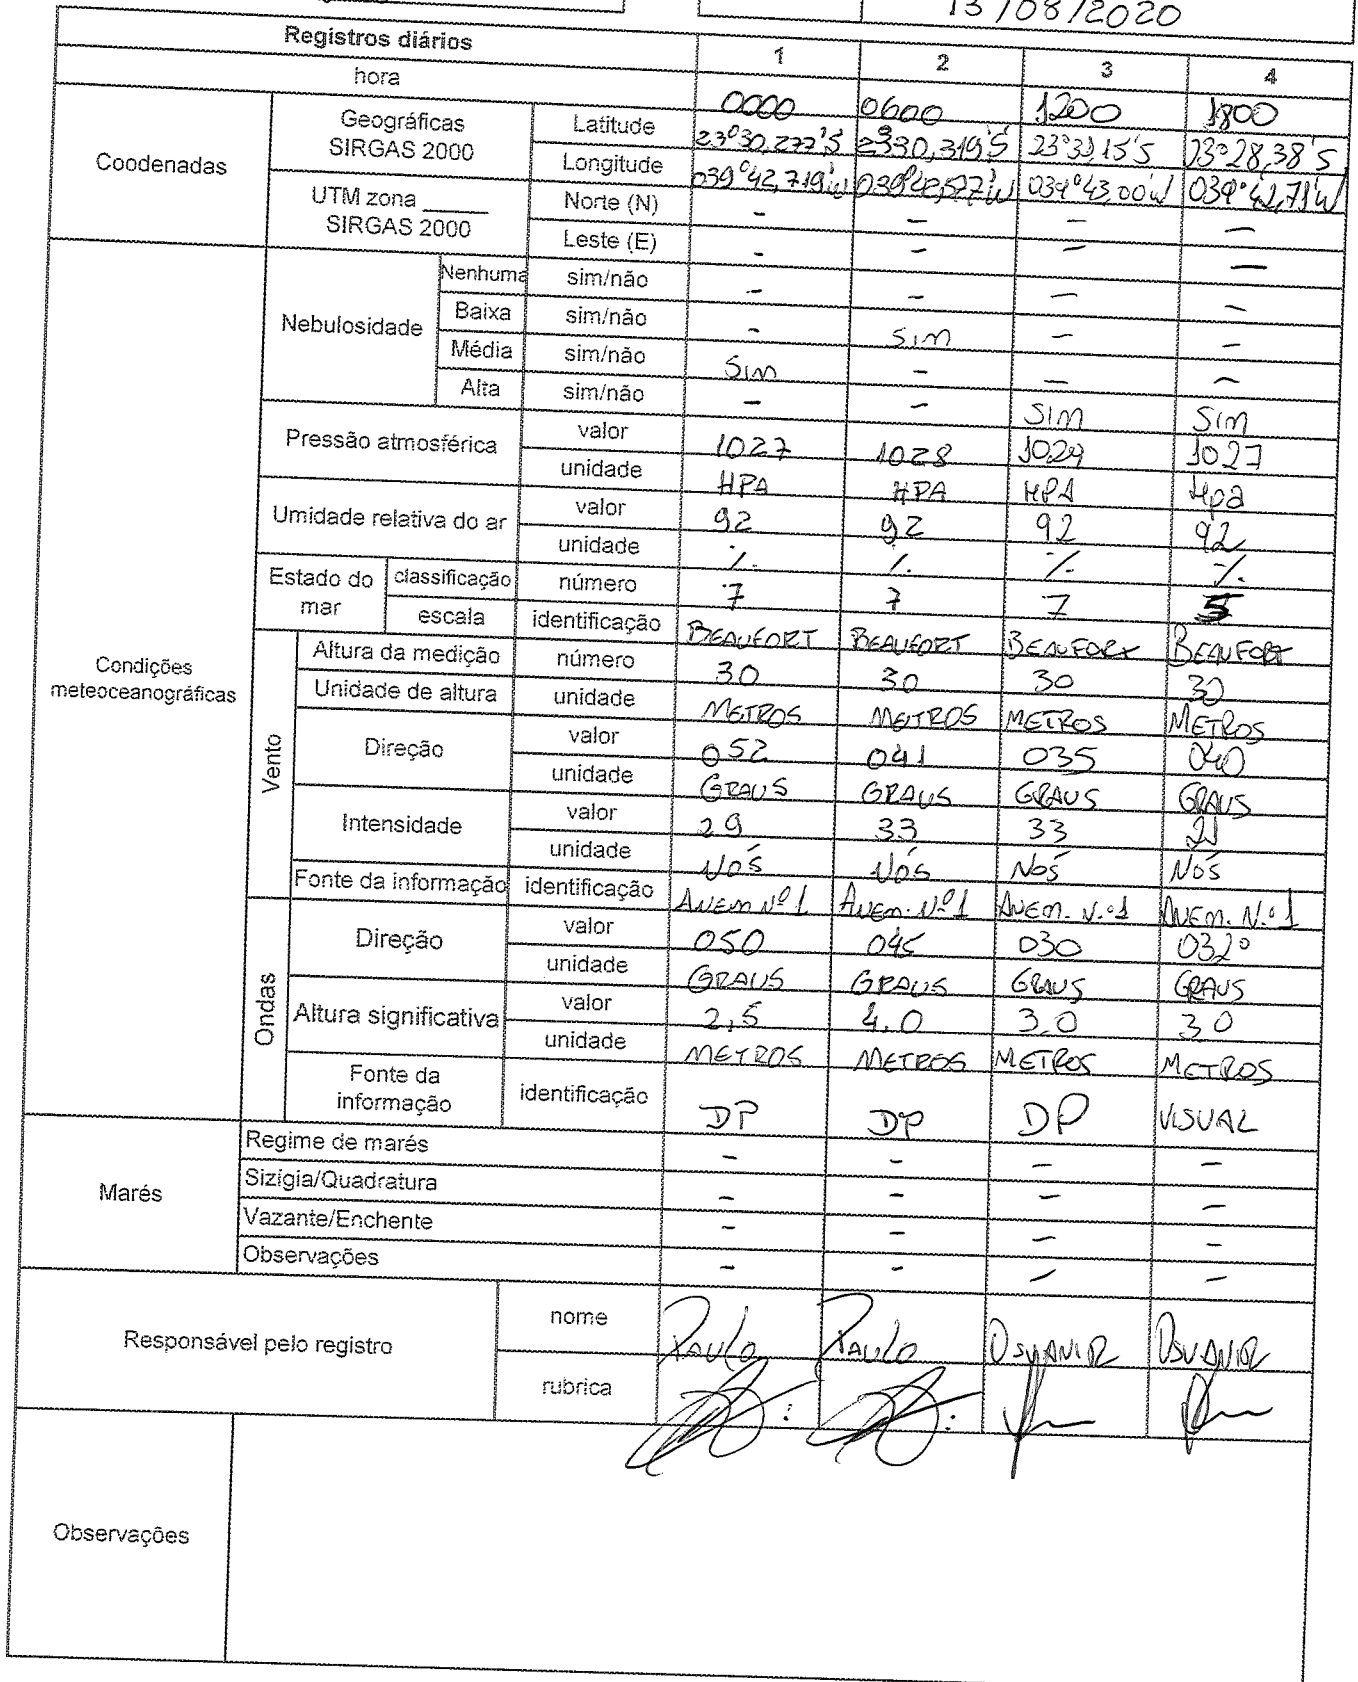 13/08/2020
Registros diários 1 2 3 4
hora 0000 0600 1200 1800
Coodenadas
Geográficas SIRGAS 2000
Latitude 23°30,277'S 23°30,319'S 23°31,15'S 23°28,38'S
Longitude 039°42,719'W 039°42,577'W 039°43,00'W 039°42,71'W
UTM zona _____ SIRGAS 2000
Norte (N) - - - -
Leste (E) - - - -
Condições meteoceanográficas
Nebulosidade
Nenhuma sim/não - - - -
Baixa sim/não - SIM - -
Média sim/não SIM - - -
Alta sim/não - - SIM SIM
Pressão atmosférica
valor 1027 1028 1029 1027
unidade HPA HPA HPA Hpa
Umidade relativa do ar
valor 92 92 92 92
unidade % % % %
Estado do mar
classificação número 7 7 7 5
escala identificação BEAUFORT BEAUFORT BEAUFORT BEAUFORT
Vento
Altura da medição número 30 30 30 30
Unidade de altura unidade METROS METROS METROS METROS
Direção
valor 052 041 035 040
unidade GRAUS GRAUS GRAUS GRAUS
Intensidade
valor 29 33 33 21
unidade NÓS NÓS NÓS NÓS
Fonte da informação identificação ANEM Nº1 ANEM. Nº1 ANEM. N.º1 ANEM. N.º1
Ondas
Direção
valor 050 045 030 032°
unidade GRAUS GRAUS GRAUS GRAUS
Altura significativa
valor 2,5 4.0 3,0 3.0
unidade METROS METROS METROS METROS
Fonte da informação identificação DP DP DP VISUAL
Marés
Regime de marés - - - -
Sizígia/Quadratura - - - -
Vazante/Enchente - - - -
Observações - - - -
Responsável pelo registro
nome PAULO PAULO OSVANIR OSVANIR
rubrica
Observações